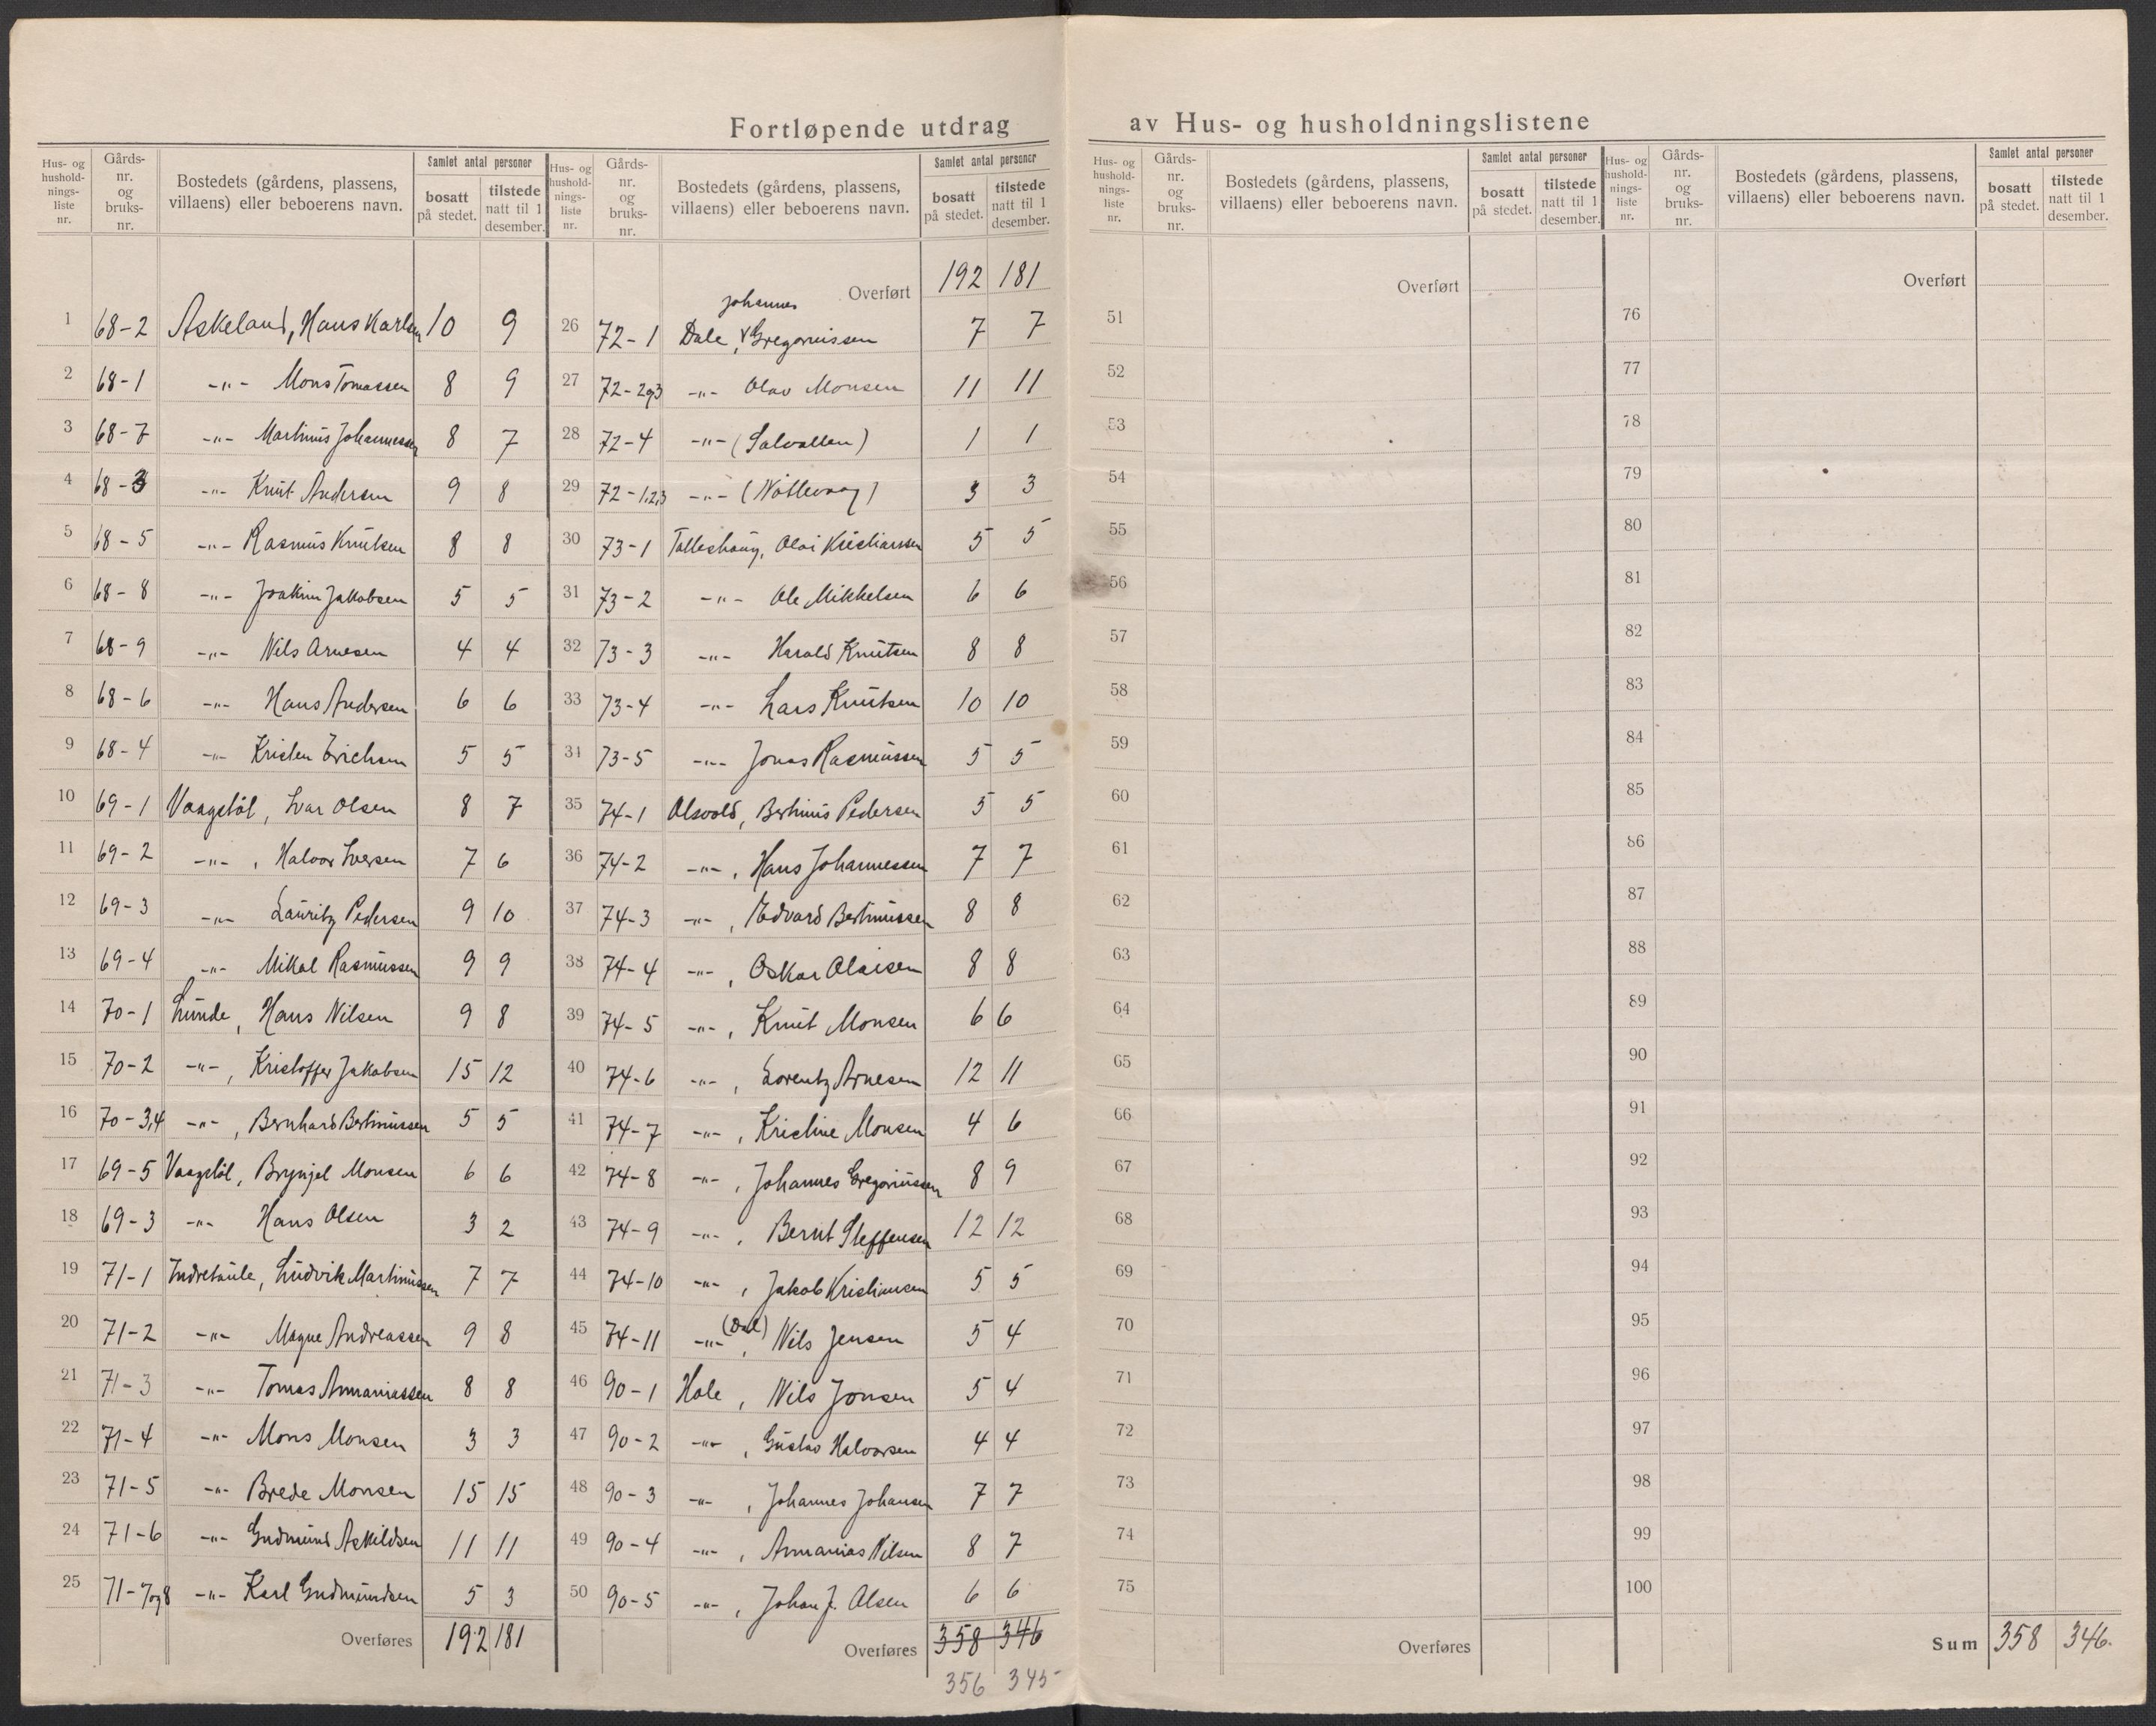 Fortløpende utdrag av Hus- og husholdningslistene
Hus- og hushold-nings-liste nr. Gårds-nr. og bruks-nr. Bostedets (gårdens, plassens, villaens) eller beboerens navn. Samlet antal personer bosatt på stedet. tilstede natt til 1 desember.
1 68-2 Askeland, Hans Karlsen 10 9
2 68-1 -"- Mons Tomassen 8 9
3 68-7 -"- Martinus Johannessen 8 7
4 68-3 -"- Knut Andersen 9 8
5 68-5 -"- Rasmus Knutsen 8 8
6 68-8 -"- Joakim Jakobsen 5 5
7 68-9 -"- Nils Arnesen 4 4
8 68-6 -"- Hans Andersen 6 6
9 68-4 -"- Kristen Erichsen 5 5
10 69-1 Vaagstöl, Ivar Olsen 8 7
11 69-2 -"-, Halvor Iversen 7 6
12 69-3 -"- Lauritz Pedersen 9 10
13 69-4 -"- Mikal Rasmussen 9 9
14 70-1 Lunde, Hans Nilsen 9 8
15 70-2 -"-, Kristoffer Jakobsen 15 12
16 70-3,4 -"-, Bernhard Bertinussen 5 5
17 69-5 Vaagstöl, Brynjel Monsen 6 6
18 69-3 -"- Hans Olsen 3 2
19 71-1 Indretaule, Ludvik Martinussen 7 7
20 71-2 -"- Magne Andreassen 9 8
21 71-3 -"- Tomas Annaniassen 8 8
22 71-4 -"- Mons Monsen 3 3
23 71-5 -"- Brede Monsen 15 15
24 71-6 -"- Gudmund Askildsen 11 11
25 71-7og8 -"- Karl Gudmundsen 5 3
Overføres 192 181
Hus- og hushold-nings-liste nr. Gårds-nr. og bruks-nr. Bostedets (gårdens, plassens, villaens) eller beboerens navn. Samlet antal personer bosatt på stedet. tilstede natt til 1 desember.
Overført 192 181
26 72-1 Dale, Johannes Gregoriussen 7 7
27 72-2og3 -"- Olav Monsen 11 11
28 72-4 -"- (Salvallen) 1 1
29 72-1,2,3 -"- (Nöttevaag) 3 3
30 73-1 Talleshaug, Olai Kristianssen 5 5
31 73-2 -"- Ole Mikkelsen 6 6
32 73-3 -"- Harald Knutsen 8 8
33 73-4 -"- Lars Knutsen 10 10
34 73-5 -"- Jonas Rasmussen 5 5
35 74-1 Olsvold, Bertinus Pedersen 5 5
36 74-2 -"-, Hans Johannessen 7 7
37 74-3 -"-, Edvard Bertinussen 8 8
38 74-4 -"-, Oskar Olaisen 8 8
39 74-5 -"-, Knut Monsen 6 6
40 74-6 -"-, Lorentz Arnesen 12 11
41 74-7 -"-, Kristine Monsen 4 6
42 74-8 -"-, Johannes Gregoriussen 8 9
43 74-9 -"-, Bernt Steffensen 12 12
44 74-10 -"-, Jakob Kristiansen 5 5
45 74-11 -"- (Dal), Nils Jensen 5 4
46 90-1 Hole, Nils Jonsen 5 4
47 90-2 -"-, Gustav Halvorsen 4 4
48 90-3 -"-, Johannes Johansen 7 7
49 90-4 -"-, Annanias Nilsen 8 7
50 90-5 -"-, Johan J. Olsen 6 6
Overføres 358 346
356 345
Hus- og hushold-nings-liste nr. Gårds-nr. og bruks-nr. Bostedets (gårdens, plassens, villaens) eller beboerens navn. Samlet antal personer bosatt på stedet. tilstede natt til 1 desember.
Overført
51
52
53
54
55
56
57
58
59
60
61
62
63
64
65
66
67
68
69
70
71
72
73
74
75
Overføres
Hus- og hushold-nings-liste nr. Gårds-nr. og bruks-nr. Bostedets (gårdens, plassens, villaens) eller beboerens navn. Samlet antal personer bosatt på stedet. tilstede natt til 1 desember.
Overført
76
77
78
79
80
81
82
83
84
85
86
87
88
89
90
91
92
93
94
95
96
97
98
99
100
Sum 358 346.